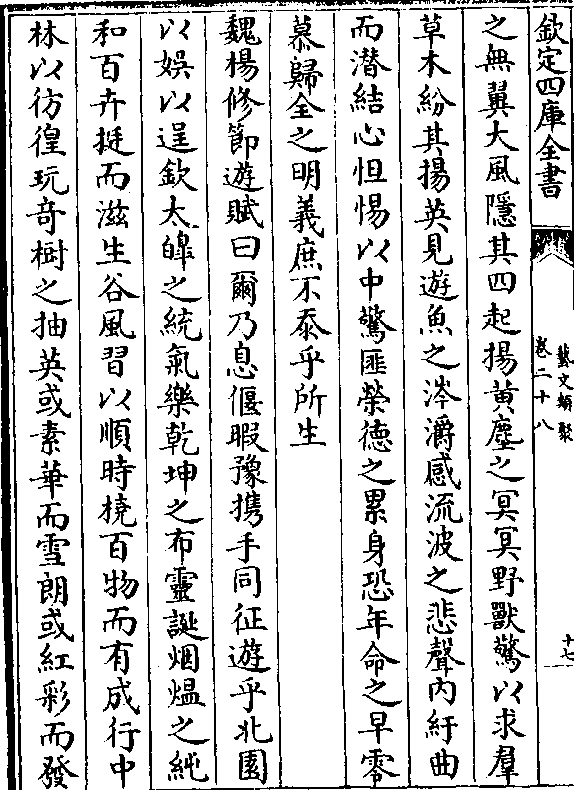 欽定四庫全書
藝文類聚
卷二十八
十七
之無翼大風隱其四起揚黄塵之冥冥野獸驚以求羣
草木紛其揚英見遊魚之涔灂感流波之悲聲内紆曲
而潜結心怛惕以中驚匪榮德之累身恐年命之早零
慕歸全之明義庶不忝乎所生
魏楊修節遊賦曰爾乃息偃暇豫携手同征遊乎北園
以娱以逞欽太皥之統氣樂乾坤之布靈誕烟煴之純
和百卉挺而滋生谷風習以順時橈百物而有成行中
林以彷徨玩竒樹之抽英或素華而雪朗或紅彩而發